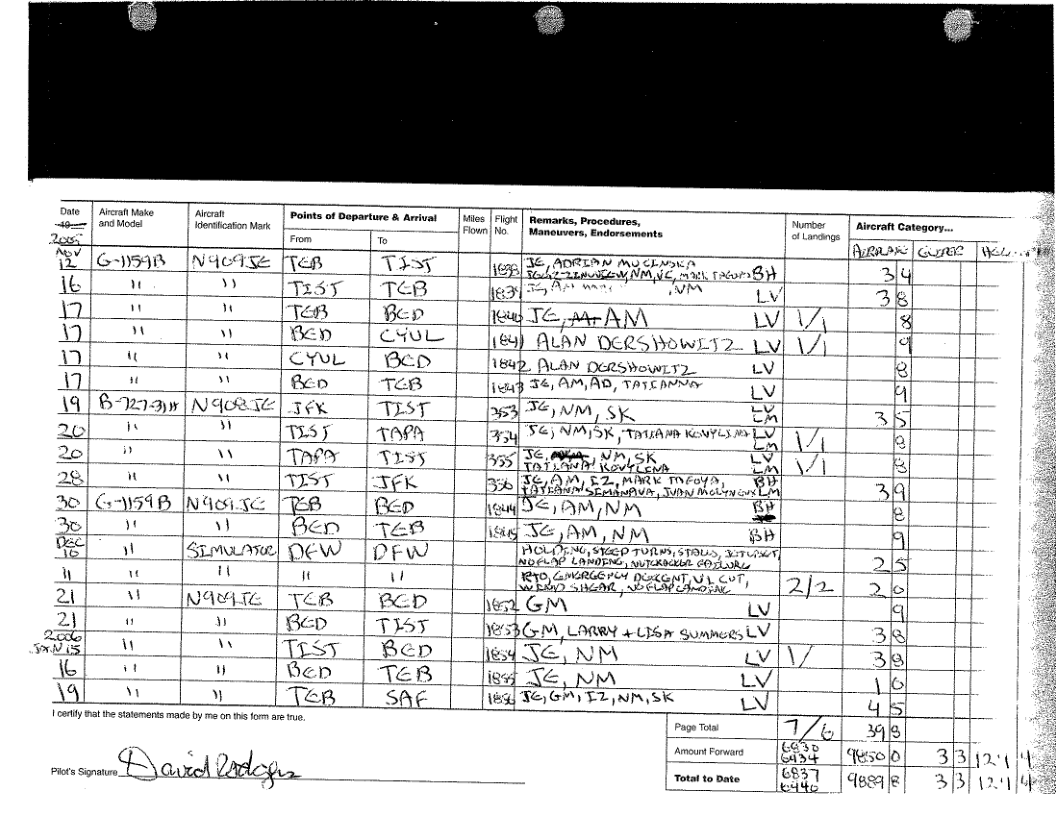 Date Aircraft Make and Model Aircraft Identification Mark Points of Departure & Arrival Miles Flown Flight No. Remarks, Procedures, Maneuvers, Endorsements Number of Landings Aircraft Category...
19 2005 From To AIRPLANE GLIDER
NOV 12 G-1159B N909JE TEB TIST 1838 JE, ADRIAN MUCINSKA NM, BH 3 4
16 " " TIST TEB 1839 JE, AM , NM LV 3 8
17 " " TEB BED 1840 JE, AM LV 1/1 8
17 " " BED CYUL 1841 ALAN DERSHOWITZ LV 1/1 9
17 " " CYUL BED 1842 ALAN DERSHOWITZ LV 8
17 " " BED TEB 1843 JE, AM, AD, TATIANNA LV 9
19 B-727-31H N908JE JFK TIST 353 JE, NM, SK LV LM 3 5
20 " " TIST TAPA 354 JE, NM, SK, TATIANA KOVYLINA LV LM 1/1 8
20 " " TAPA TIST 355 JE, NM, SK TATIANA KOVYLINA LV LM 1/1 8
28 " " TIST JFK 356 JE, AM, IZ, MARK TAFOYA, TATIANA JUAN MOLYNEUX BH LM 3 9
30 G-1159B N909JE TEB BED 1844 JE, AM, NM BH 8
30 " " BED TEB 1845 JE, AM, NM BH 9
DEC 10 " SIMULATOR DFW DFW HOLDING, STEEP TURNS, STALLS, NO FLAP LANDING, NUTCRACKER FAILURE 2 5
" " " " " RTO, EMERGENCY DESCENT, V1 CUT, WIND SHEAR, NO FLAP LANDING 2/2 2 0
21 " N909JE TEB BED 1852 GM LV 9
21 " " BED TIST 1853 GM, LARRY + LISA SUMMERS LV 3 8
2006 JAN 15 " " TIST BED 1854 JE, NM LV 1/ 3 9
16 " " BED TEB 1855 JE, NM LV 1 0
19 " " TEB SAF 1856 JE, GM, IZ, NM, SK LV 4 5
I certify that the statements made by me on this form are true.
Page Total 7/6 39 8
Amount Forward 6830 6434 9850 0 3 3 121 4
Pilot's Signature David Rodgers
Total to Date 6837 6440 9889 8 3 3 121 4